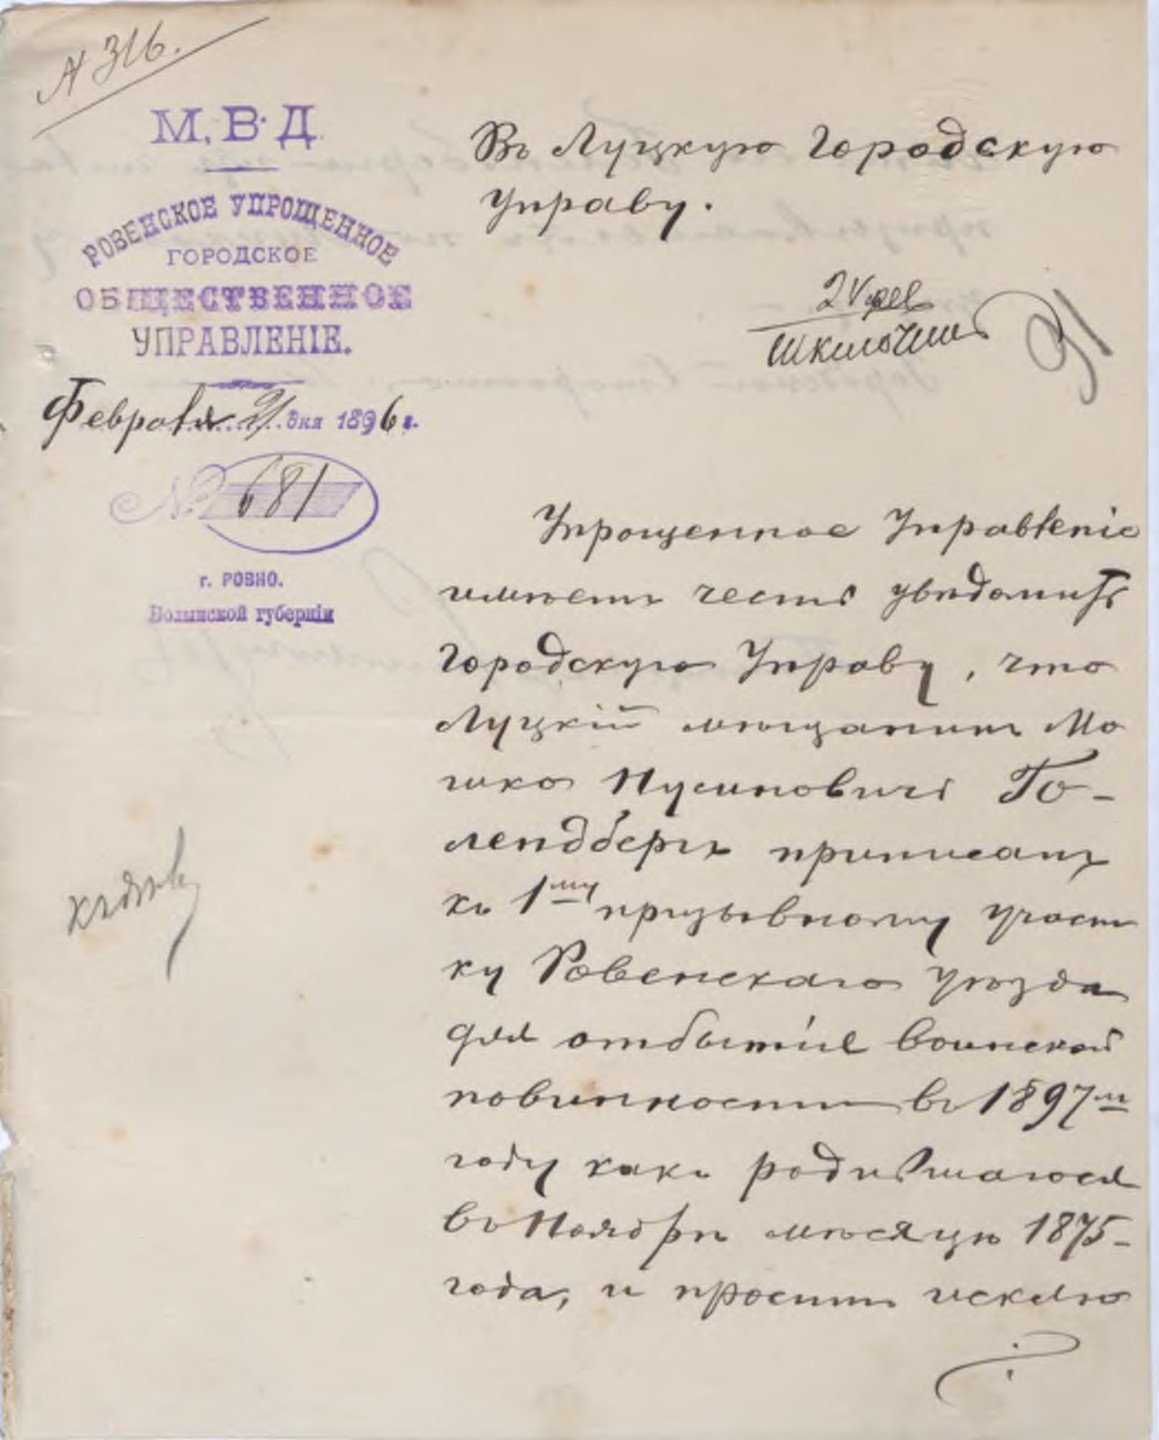 № 316.
М. В. Д
РОВЕНСКОЕ УПРОЩЕННОЕ
ГОРОДСКОЕ
ОБЩЕСТВЕННОЕ
УПРАВЛЕНІЕ.
Февраля 21 дня 1896 г.
№ 681
г. РОВНО.
Волынской губерніи
Въ Луцкую Городскую
Управу.
91
Упрощенное Управленіе
имѣетъ честь увѣдомить
Городскую Управу, что
Луцкій мѣщанинъ Мо
шко Нусиновичъ Го-
лендбергъ приписанъ
къ 1му призывному участ
ку Ровенскаго уѣзда
для отбытія воинской
повинности въ 1897м
году какъ родившагося
въ Ноябрѣ мѣсяцѣ 1875-
года, и проситъ исклю